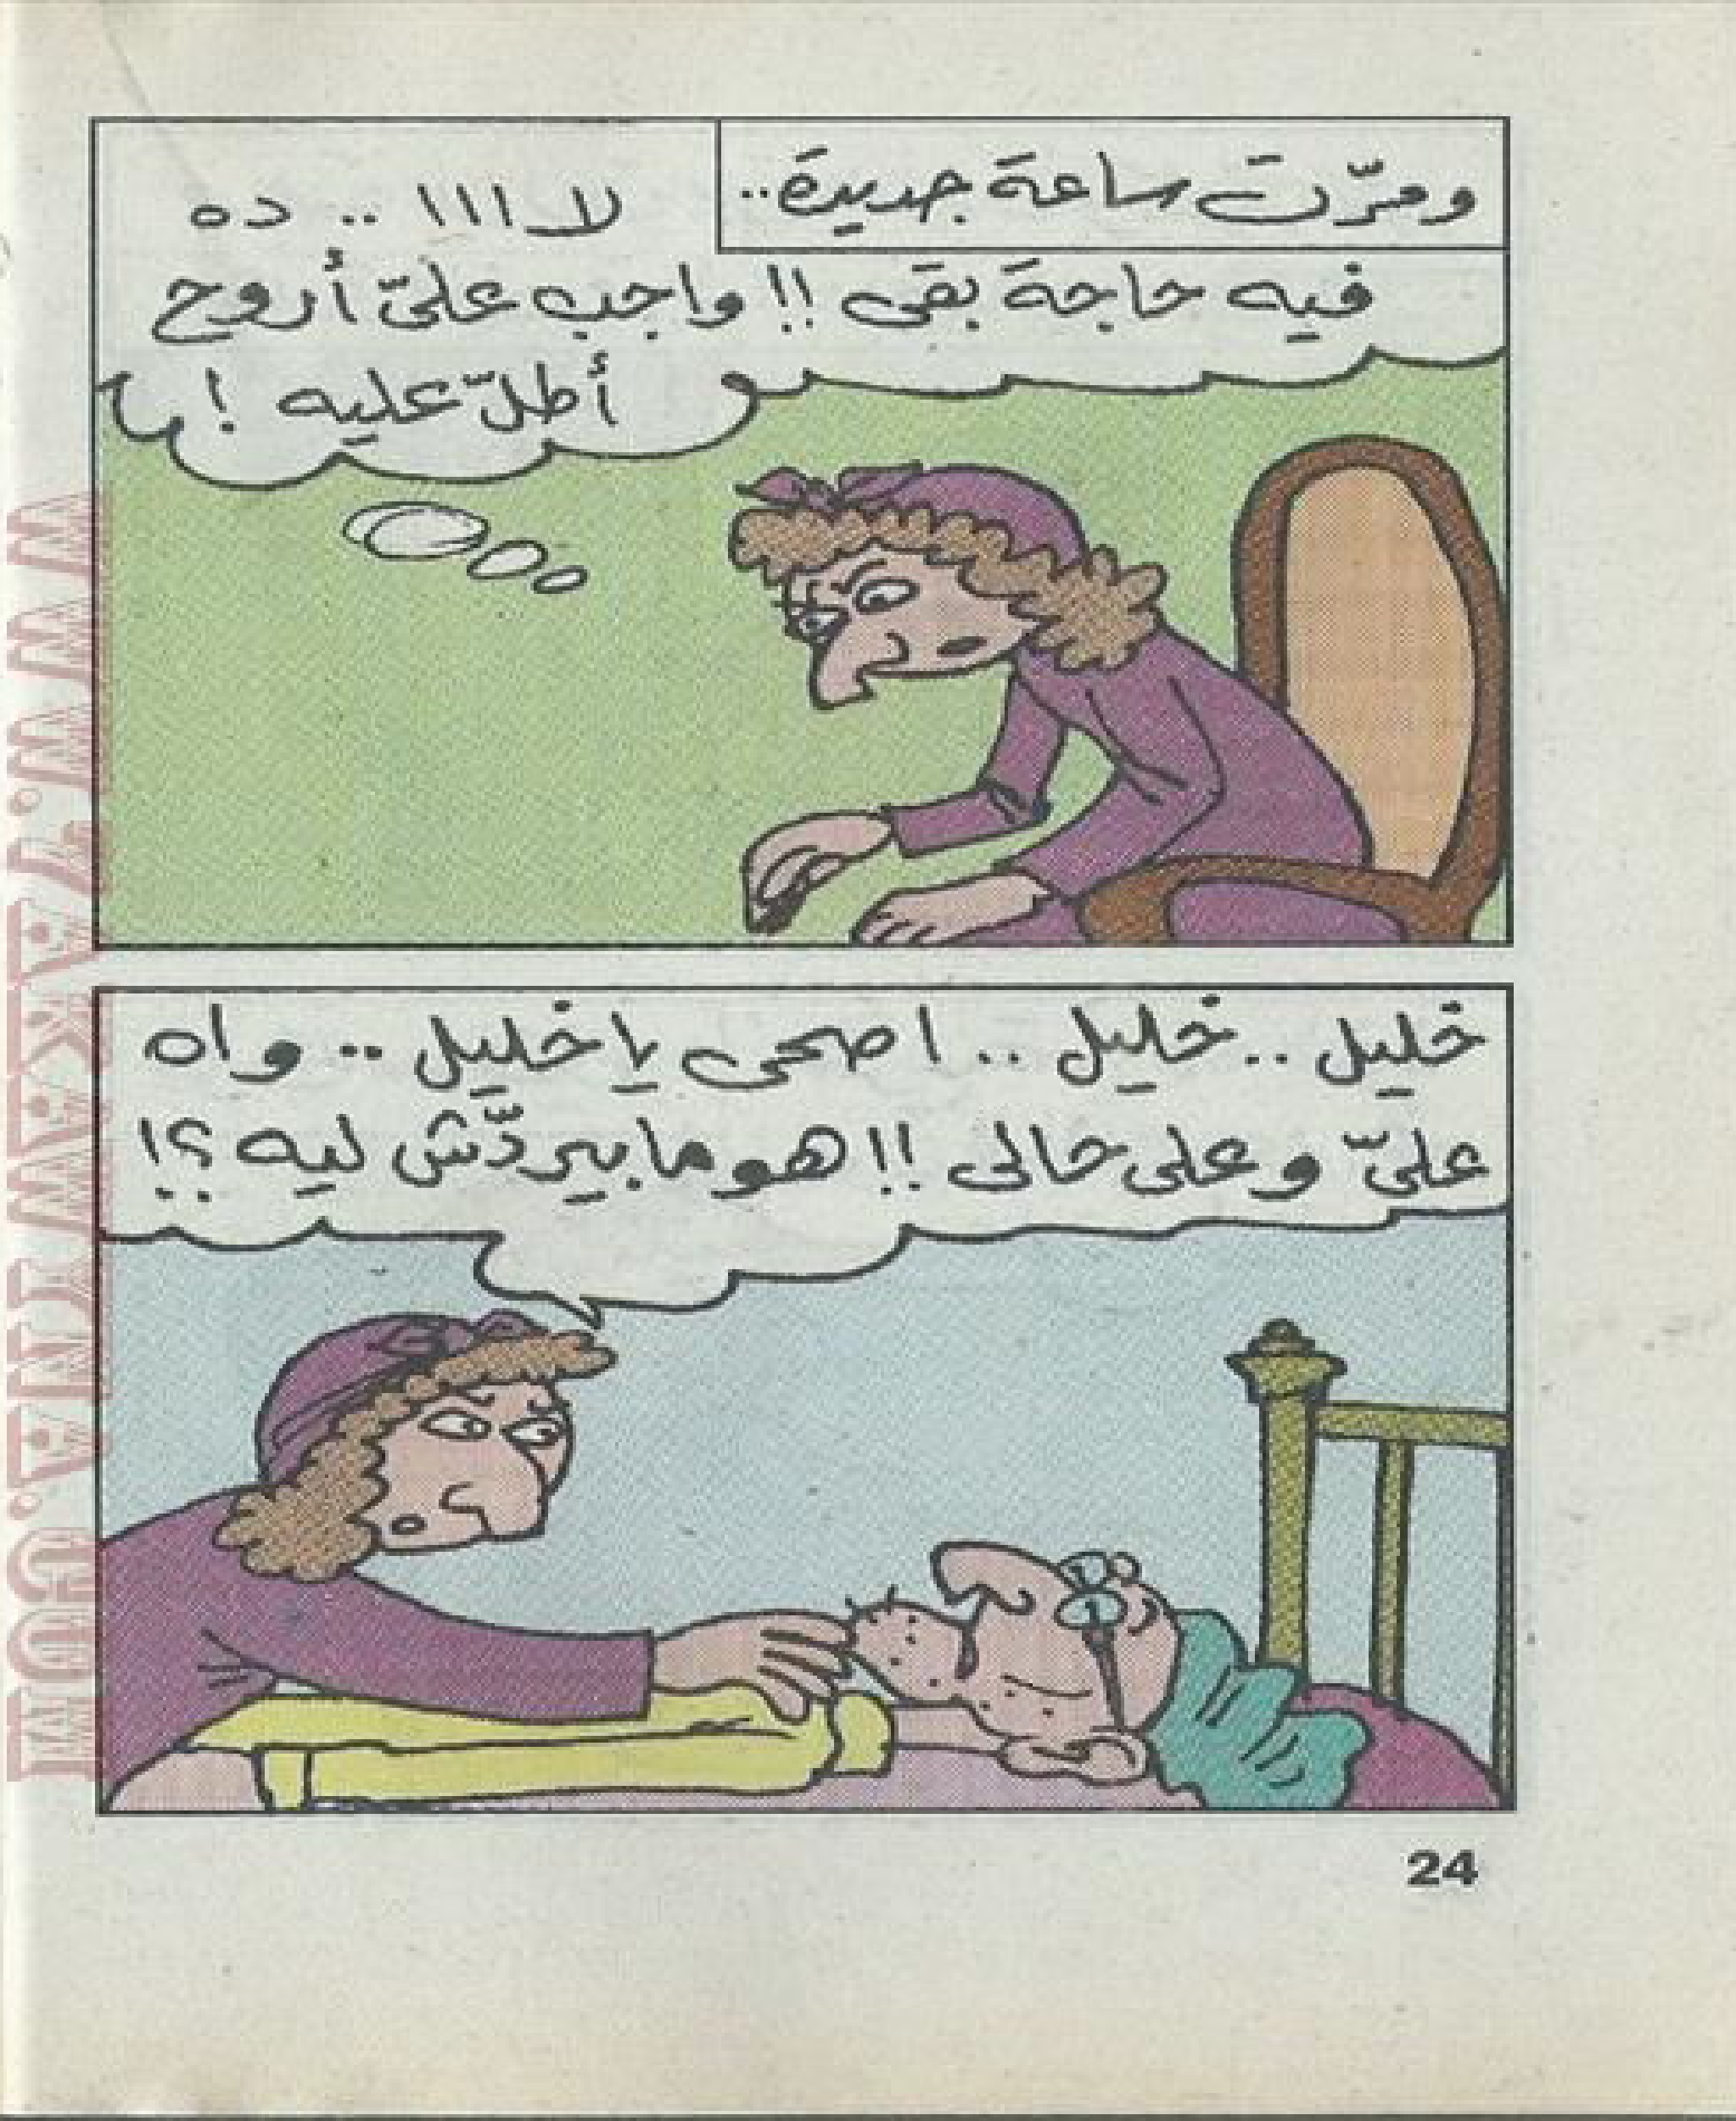 ومرّت ساعة جديدة..
لاااا .. ده
فيه حاجة بقى !! واجب علىّ أروح
أطلّ عليه !
خليل .. خليل .. اصحى يا خليل .. واه
علىّ وعلى حالى !! هو ما بيردّش ليه ؟!
24